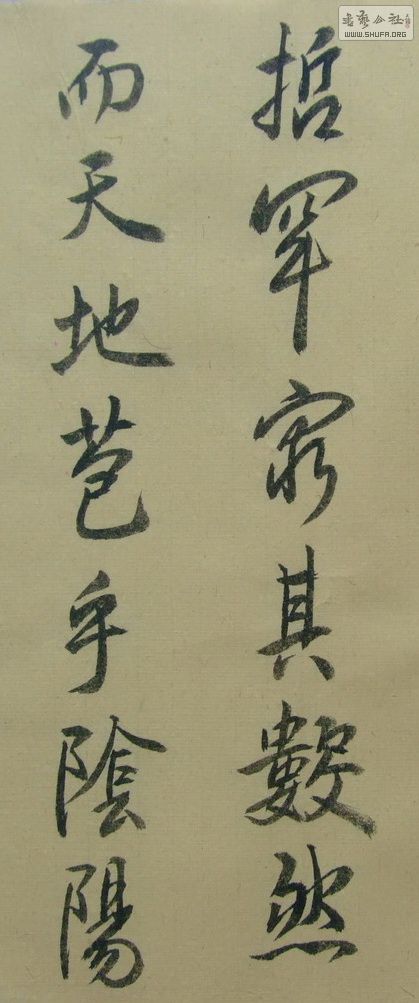 哲罕窮其數然
而天地苞乎陰陽
書藝公社
WWW.SHUFA.ORG